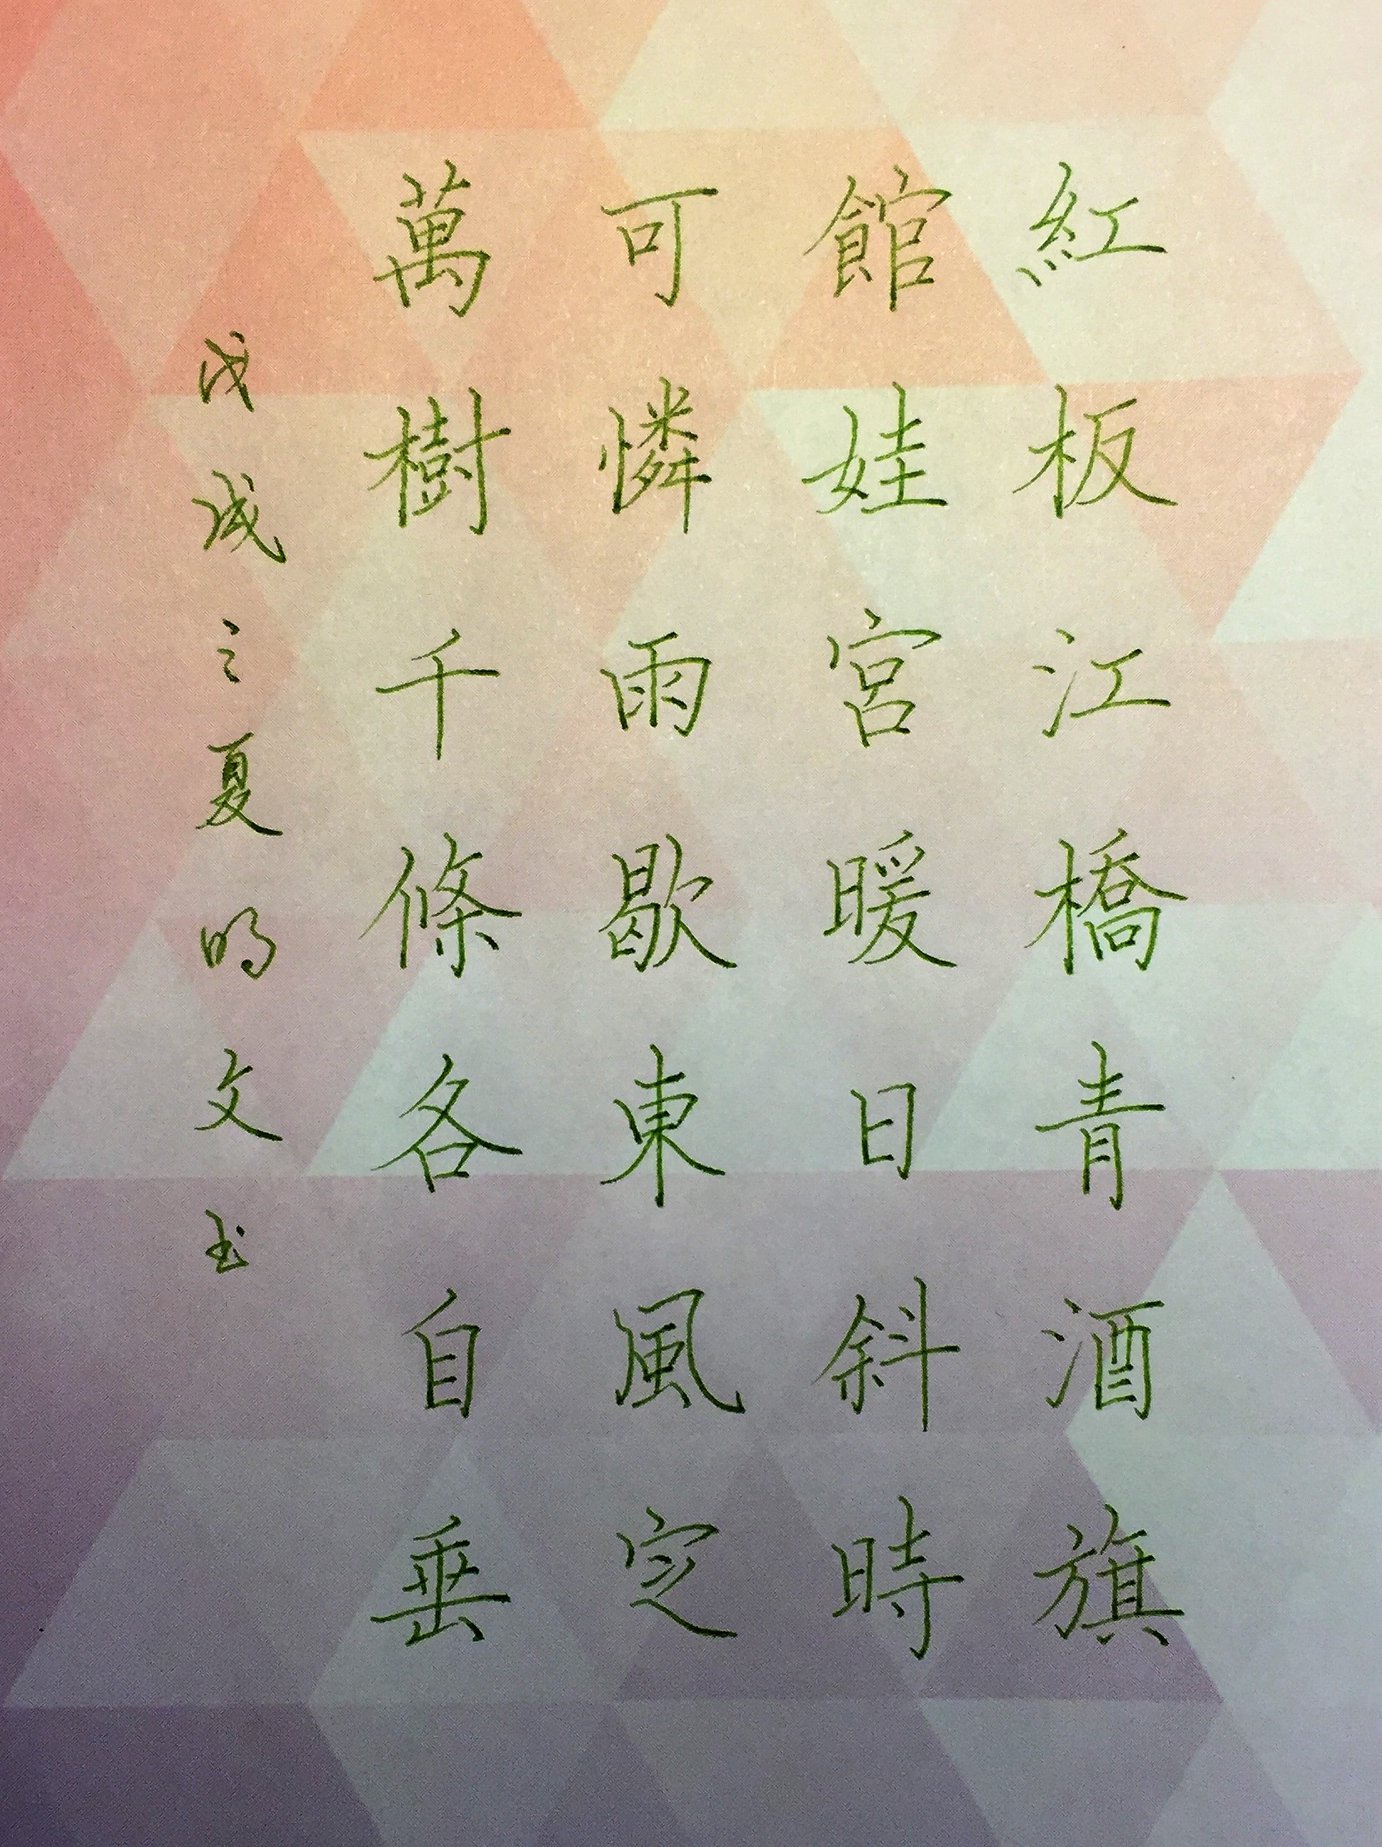 紅板江橋青酒旗
館娃宮暖日斜時
可憐雨歇東風定
萬樹千條各自垂
戊戌之夏明文书